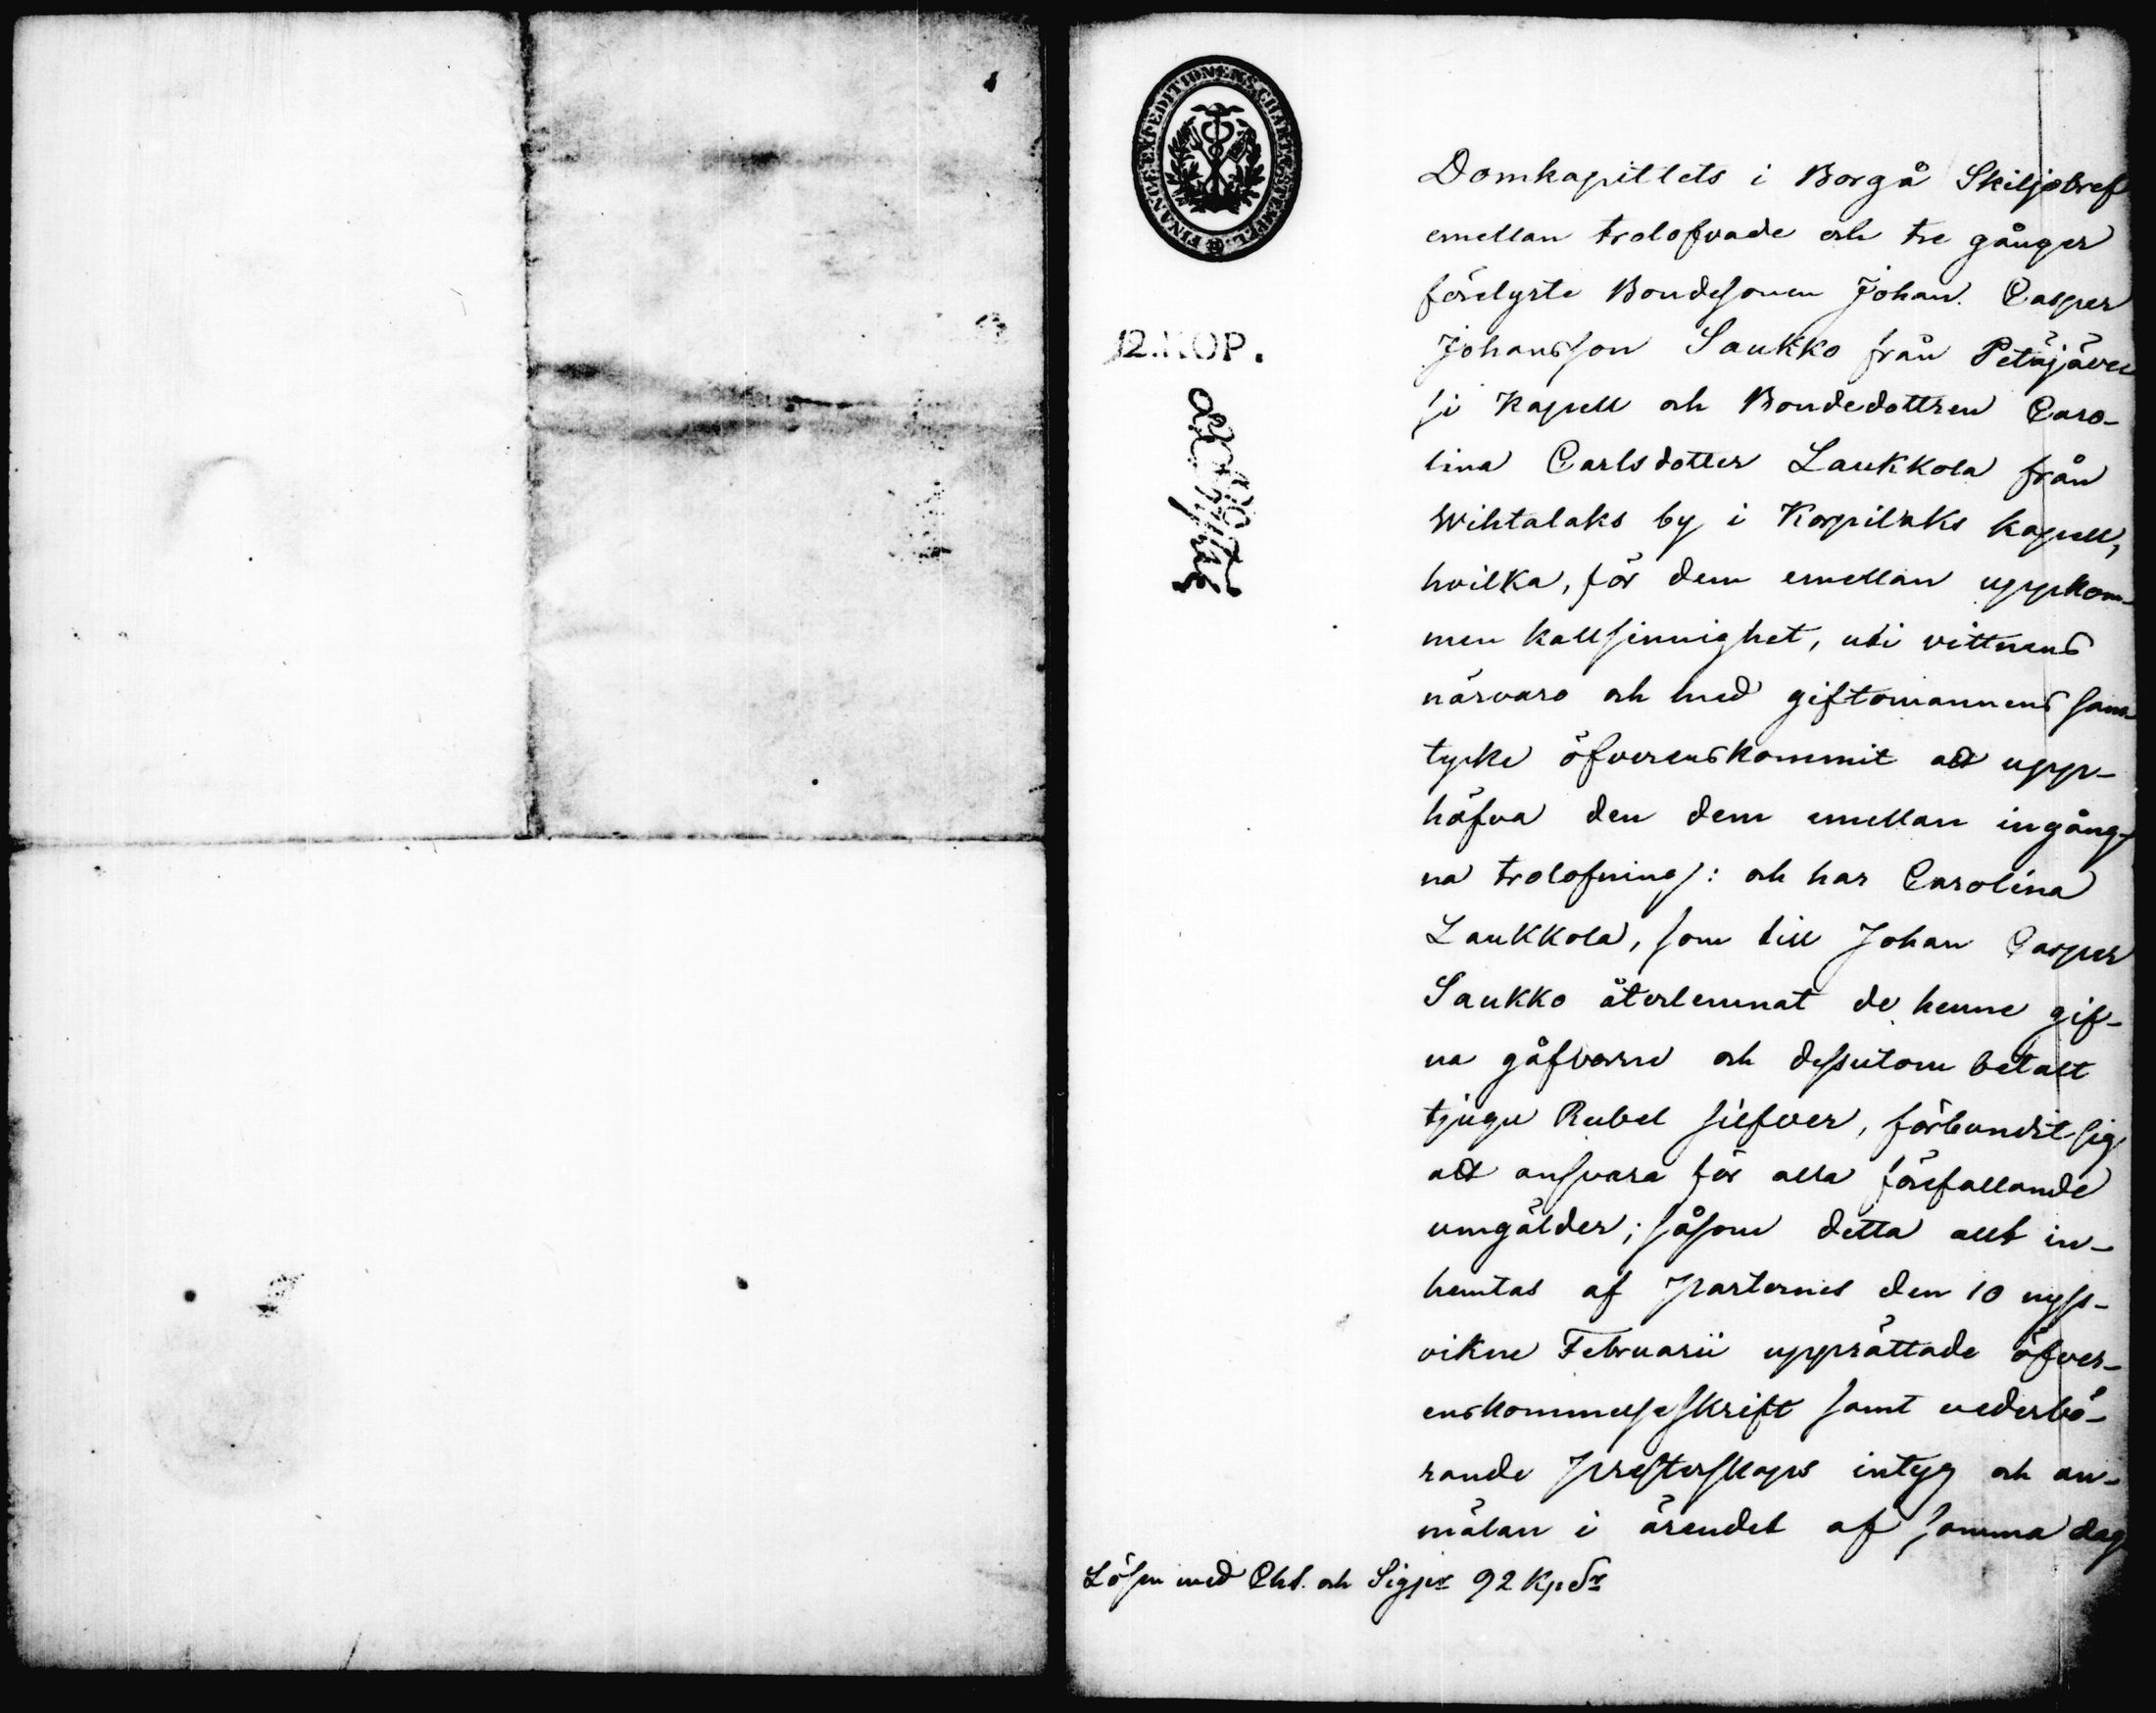 FINANCE EXPEDITIONENS CHARTÆ STEMPEL
12. KOP.
Domkapitlets i Borgå Skiljobref
emellan trolofvade och tre gånger
förelyste Bondesonen Johan Casper
Johansson Saukko från Petäjäve
si Kapell och Bondedottren Caro-
lina Carlsdotter Laukkola från
Wihtalaks by i Korpilaks kapell,
hvilka, för dem emellan uppkom-
men kallsinnighet, uti vittnens
närvaro och med giftomannens sam-
tycke öfverenskommit att upp-
häfva den dem emellan ingång-
na trolofning: och har Carolina
Laukkola, som till Johan Casper
Saukko återlemnat de henne gif-
na gåfvorne och dessutom betalt
tjugu Rubel silfver, förbundit sig
att ansvara för alla förefallande
umgälder; såsom detta allt in-
hemtas af parternes den 10 nyss-
vikne Februarii upprättade öfver-
enskommelseskrift samt vederbö-
rande presterskaps intyg och an-
mälan i ärendet af samma dag
Lösen med Cht. och Sigpr 92 Kp Sr